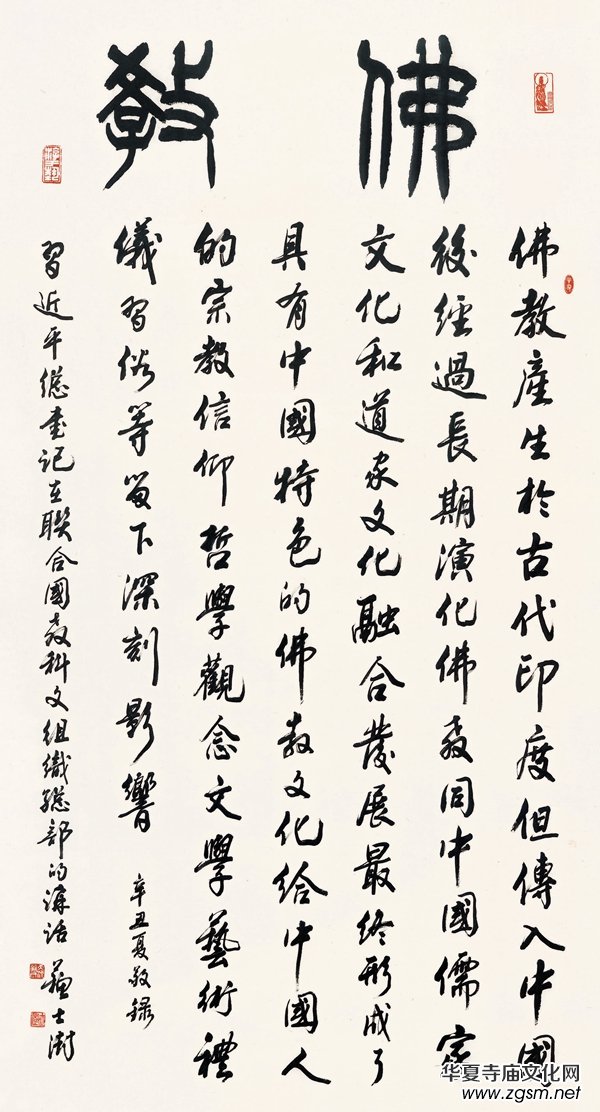 佛教
佛教產生於古代印度但傳入中國
後經過長期演化佛教同中國儒家
文化和道家文化融合發展最終形成了
具有中國特色的佛教文化給中國人
的宗教信仰哲學觀念文學藝術禮
儀習俗等留下深刻影響
辛丑夏敬錄
習近平總書記在聯合國教科文組織總部的講話 蘇士澍
华夏寺庙文化网
www.zgsm.net